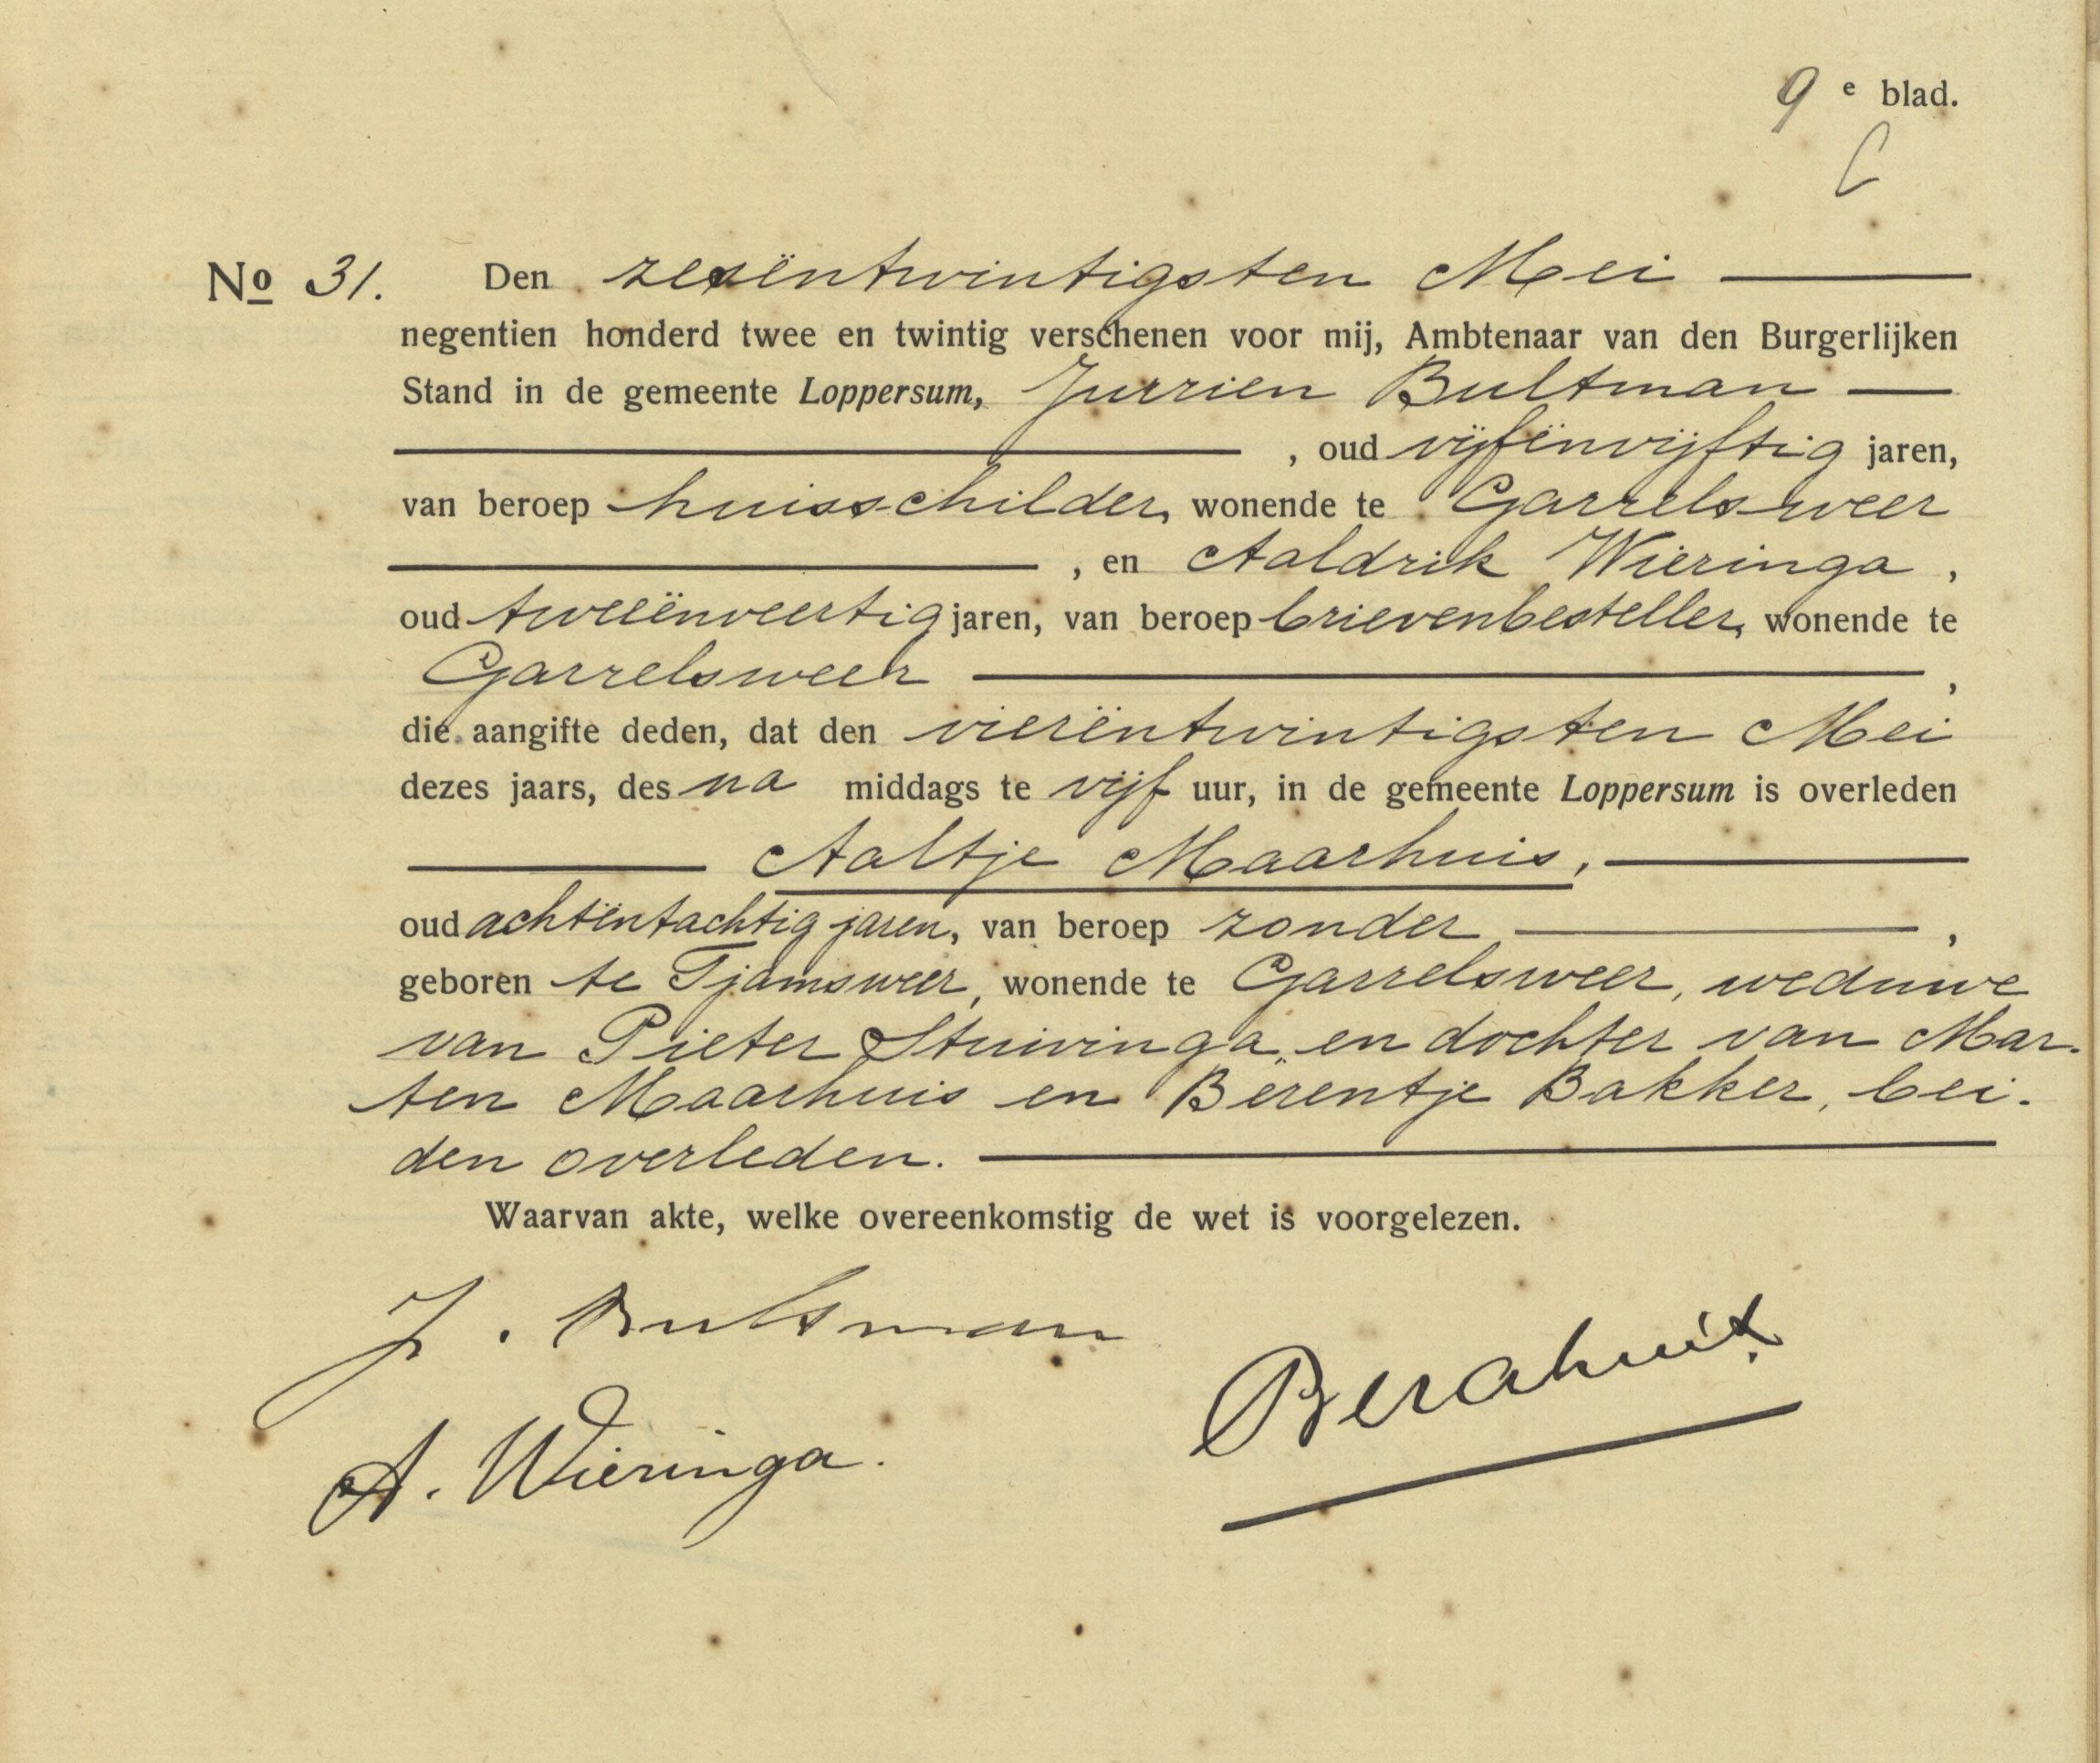 9 e blad.
No 31. Den zesëntwintigsten Mei
negentien honderd twee en twintig verschenen voor mij, Ambtenaar van den Burgerlijken
Stand in de gemeente Loppersum, Jurrien Bultman
, oud vijfënvijftig jaren,
van beroep huisschilder, wonende te Garrelsweer
, en Aaldrik Wieringa,
oud tweeënveertig jaren, van beroep brievenbesteller, wonende te
Garrelsweer ,
die aangifte deden, dat den vierëntwintigsten Mei
dezes jaars, des na middags te vijf uur, in de gemeente Loppersum is overleden
Aaltje Maarhuis,
oud achtëntachtig jaren, van beroep zonder ,
geboren te Tjamsweer, wonende te Garrelsweer, weduwe
van Pieter Stuivinga, en dochter van Mar-
ten Maarhuis en Berentje Bakker, bei-
den overleden.
Waarvan akte, welke overeenkomstig de wet is voorgelezen.
J. Bultman
A. Wieringa.